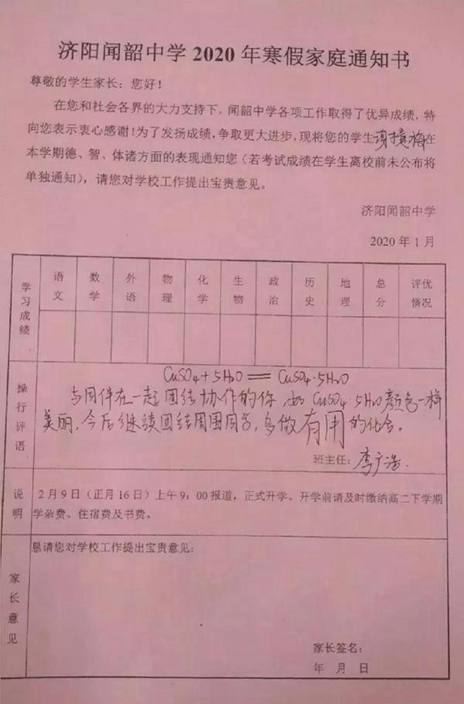 济阳闻韶中学 2020 年寒假家庭通知书
尊敬的学生家长：您好！
在您和社会各界的大力支持下，闻韶中学各项工作取得了优异成绩，特
向您表示衷心感谢！为了发扬成绩，争取更大进步，现将您的学生在
本学期德、智、体诸方面的表现通知您（若考试成绩在学生离校前未公布将
单独通知），请您对学校工作提出宝贵意见。
济阳闻韶中学
2020 年 1 月
学习成绩 语文 数学 外语 物理 化学 生物 政治 历史 地理 总分 评优情况
操行评语
CuSO4 + 5H2O == CuSO4·5H2O
与同伴在一起团结协作的你 如 CuSO4 5H2O 颜色一样
美丽，今后继续团结周围同学，多做有用的化合。
班主任：李广浩
说明 2 月 9 日（正月 16 日）上午 9：00 报道，正式开学。开学前请及时缴纳高二下学期
学杂费、住宿费及书费。
家长意见 恳请您对学校工作提出宝贵意见：
家长签名：
年 月 日